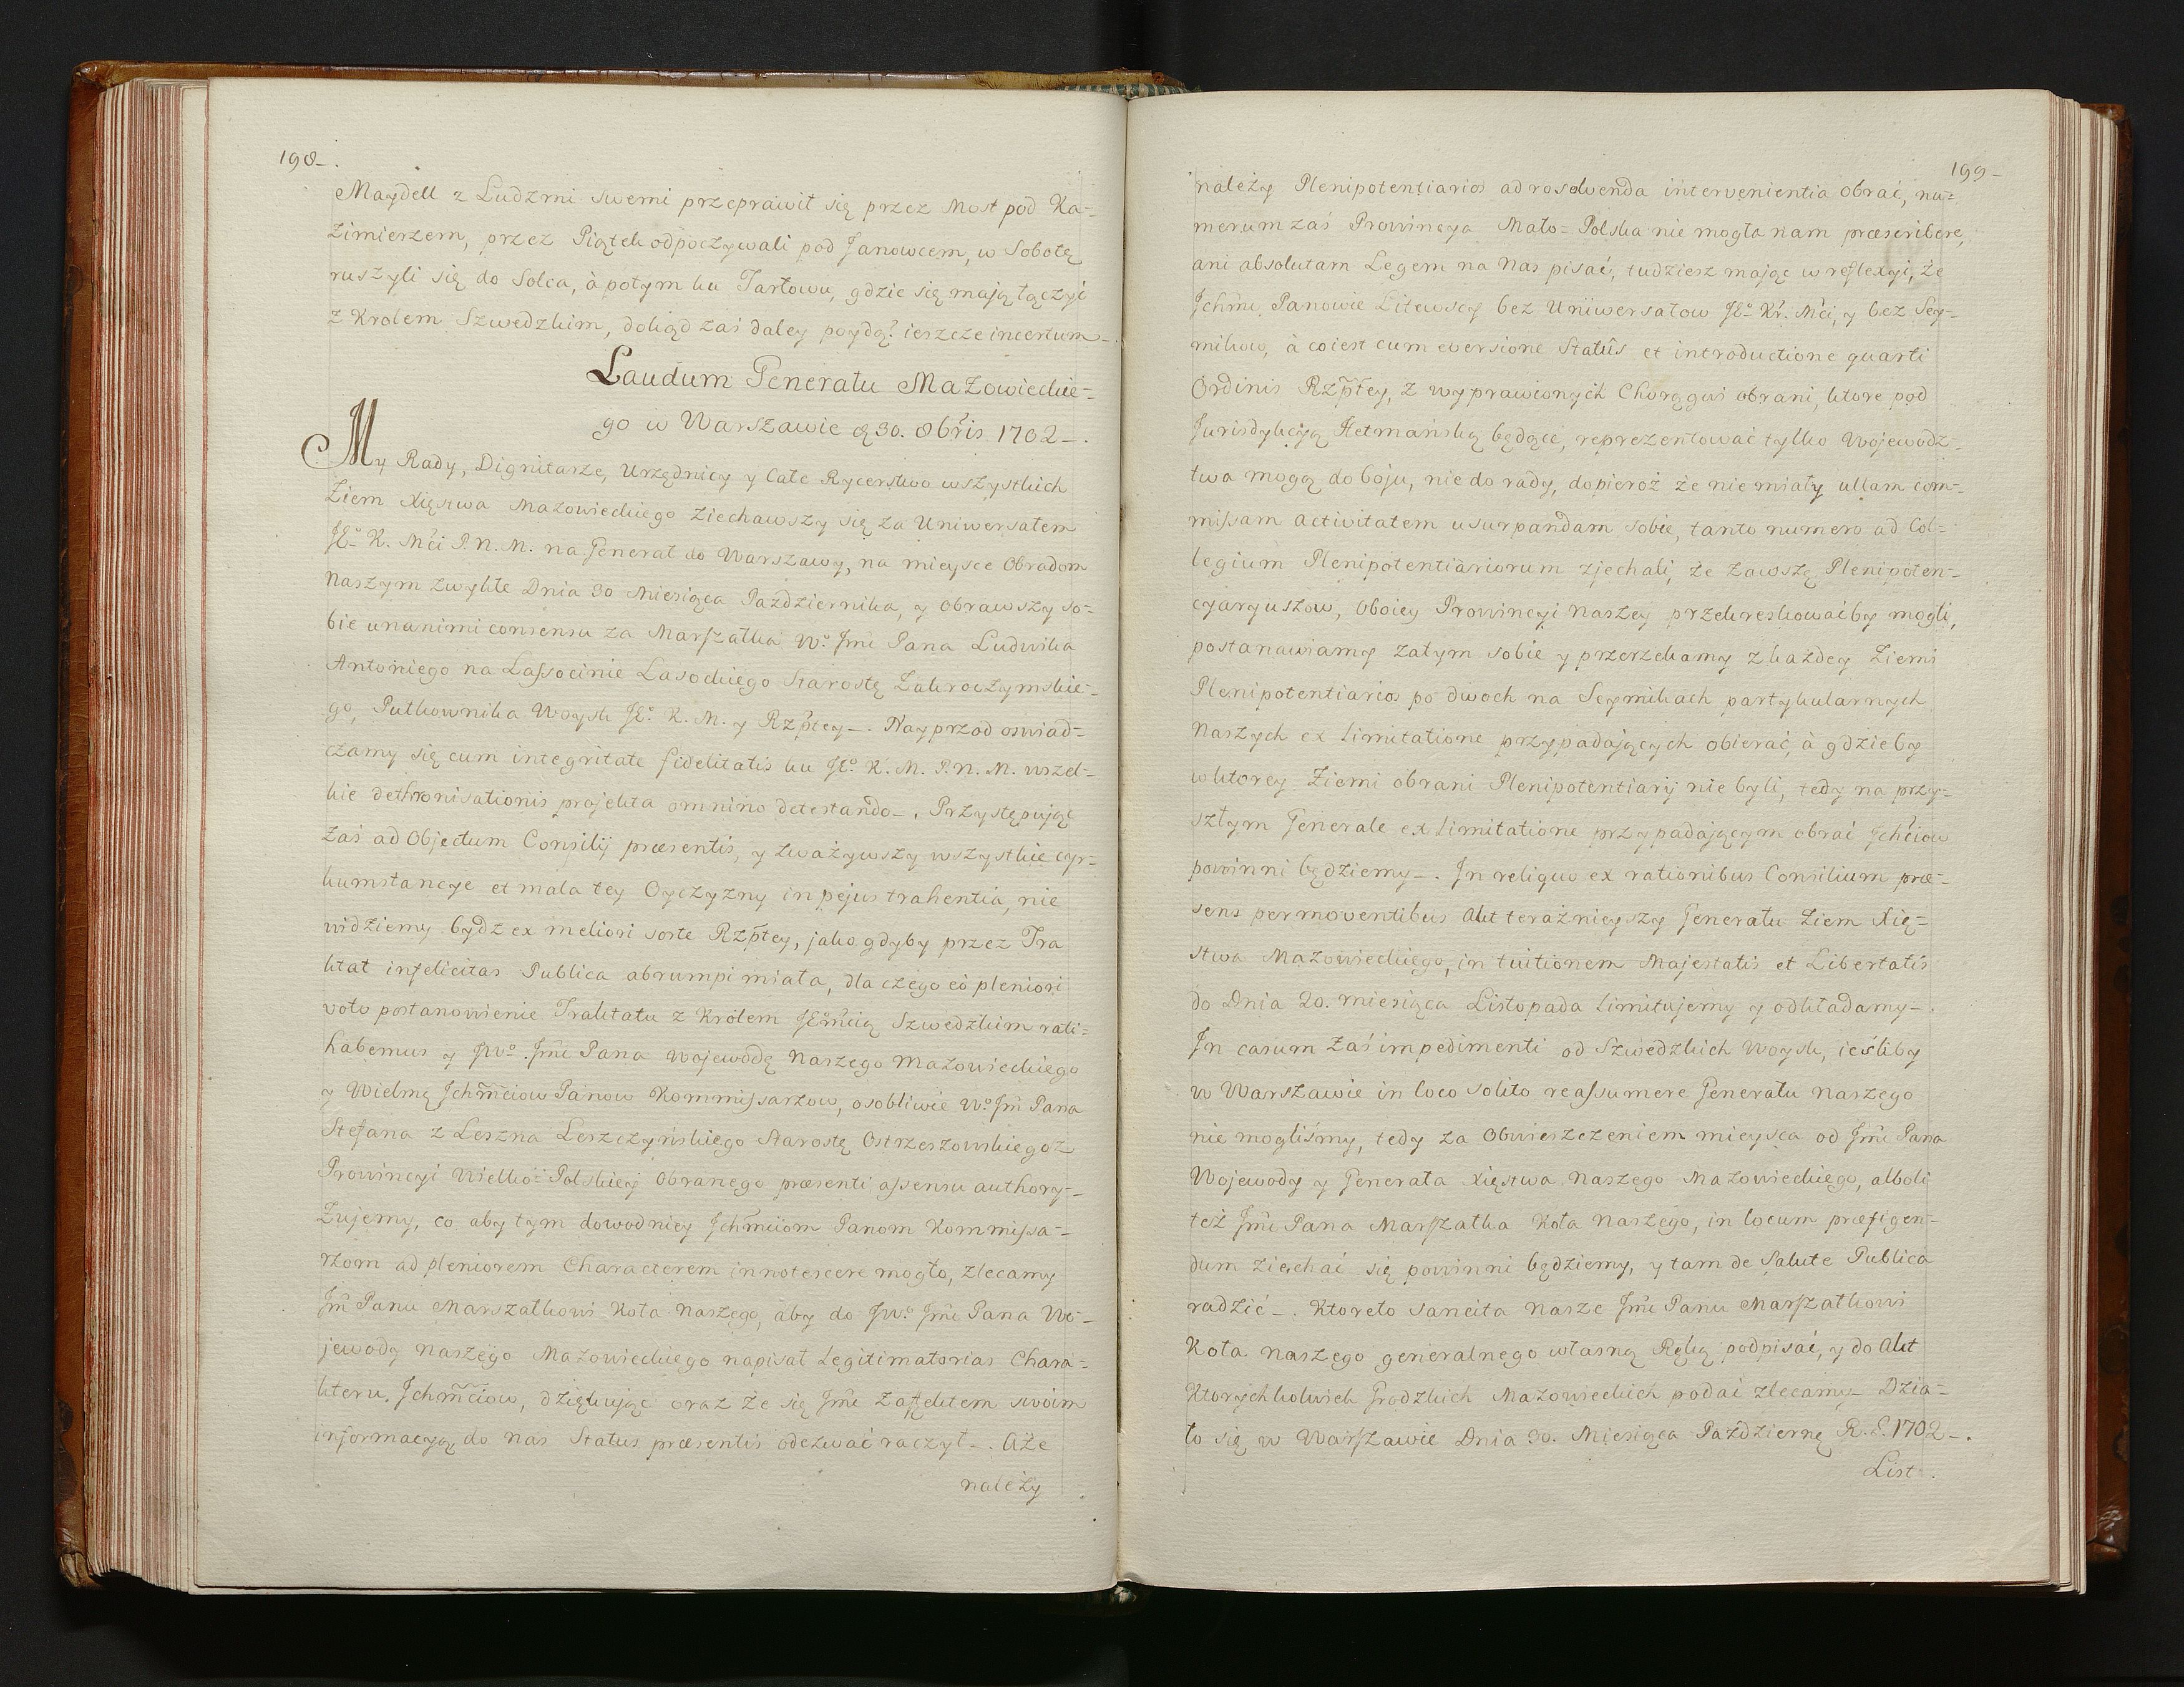 198.
Maydell z Ludzmi swemi przeprawił się przez Most pod Ka=
zimierzem, przez Piątek odpoczywali pod Janowcem, w Sobotę
ruszyli się do Solca, à potym ku Tarłowu, gdzie się mają łączyć
z Krolem Szwedzkim, dokąd zaś daley poydą? ieszcze incertum
Laudum Generału Mazowieckie=
go w Warszawie d 30. 8bris 1702.
My Rady, Dignitarze, Urzędnicy y całe Rycerstwo wszystkich
Ziem Xięstwa Mazowieckiego ziechawszy się za Uniwersałem
JE⁰ K. Mći P. N. M. na Generał do Warszawy, na mieysce Obradom
Naszym zwykłe Dnia 30 Miesiąca Października, y obrawszy so=
bie unanimi consensu za Marszałka W⁰ Jmć Pana Ludwika
Antoniego na Lassocinie Lasockiego Starostę Zakroczymskie=
go, Pułkownika Woysk JE⁰ K. M. y Rzptey. Nayprzod oswiad=
czamy się cum integritate fidelitatis ku JE⁰ K. M. P. N. M. wszel=
kie dethronisationis projekta omnino detestando. Przystępując
zaś ad Objectum Consilij præsentis, y zważywszy wszystkie cyr=
kumstancye et mala tey Oyczyzny in pejus trahentia, nie
widziemy bydz ex meliori sorte Rzptey, jako gdyby przez Tra
ktat infelicitas Publica abrumpi miała, dla czego eò pleniori
voto postanowienie Traktatu z Królem JEmcią Szwedzkim rati=
habemus y JW⁰ Jmć Pana Wojewodę Naszego Mazowieckiego
y Wielmę Jchmciow Panow Kommissarzow, osobliwie W⁰ Jm Pana
Stefana z Leszna Leszczyńskiego Starostę Ostrzeszowskiego z
Prowincyi Wielko=Polskiey Obranego præsenti assensu authory=
zujemy, co aby tym dowodniey Jchmciom Panom Kommissa=
rzom ad pleniorem Characterem innotescere mogło, zlecamy
Jm Panu Marszałkowi Koła Naszego, aby do JW⁰ Jmć Pana Wo=
jewody Naszego Mazowieckiego napisał Legitimatorias Chara=
kteru Jchmciow, dziękując oraz że się Jmć z affektem swoim
informacyą do nas Status præsentis odezwać raczył. Aże
należy
199
należy Plenipotentiarios ad rosolvenda intervenientia obrać, nu=
merum zaś Prowincya Mało=Polska nie mogła nam præscribere,
ani absolutam Legem na Nas pisać, tudziesz mając w reflexyi, że
Jchmć Panowie Litewscy bez Uniwersałow JE⁰ Kr. Mći, y bez Sey=
mikow, à co iest cum eversione Statûs et introductione quarti
Ordinis Rzptey, z wyprawionych Chorągwi obrani, ktore pod
Jurisdykcyą Hetmańską będące, reprezentować tylko Wojewodz=
twa mogą do boju, nie do rady, dopieroż że nie miały ullam com=
missam activitatem usurpandam sobie, tanto numero ad Col=
legium Plenipotentiariorum zjechali, że zawsze Plenipoten=
cyaryuszow, Oboiey Prowincyi Naszey przekreskowaćby mogli,
postanawiamy zatym sobie y przyrzekamy z każdey Ziemi
Plenipotentiarios po dwoch na Seymikach partykularnych
Naszych ex limitatione przypadających obierać, à gdzieby
w ktorey Ziemi obrani Plenipotentiarij nie byli, tedy na przy=
szłym Generale ex limitatione przypadającym obrać Jchciow
powinni będziemy. In reliquo ex rationibus Consilium præ=
sens permoventibus Akt teraźnieyszy Generału Ziem Xię=
stwa Mazowieckiego, in tuitionem Majestatis et Libertatis
do Dnia 20. miesiąca Listopada limitujemy y odkładamy.
In casum zaś impedimenti od Szwedzkich Woysk, ieśliby
w Warszawie in loco solito reassumere Generału Naszego
nie mogliśmy, tedy za Obwieszczeniem mieysca od Jmć Pana
Wojewody y Generała Xięstwa Naszego Mazowieckiego, alboli
też Jmć Pana Marszałka Koła Naszego, in locum præfigen=
dum ziechać się powinni będziemy, y tam de Salute Publica
radzić. Ktoreto sancita Nasze Jmć Panu Marszałkowi
Koła naszego generalnego własną Ręką podpisać, y do Akt
Ktorychkolwiek Grodzkich Mazowieckich podać zlecamy. Dzia=
ło się w Warszawie Dnia 30. Miesiąca Październą R. P. 1702.
List.